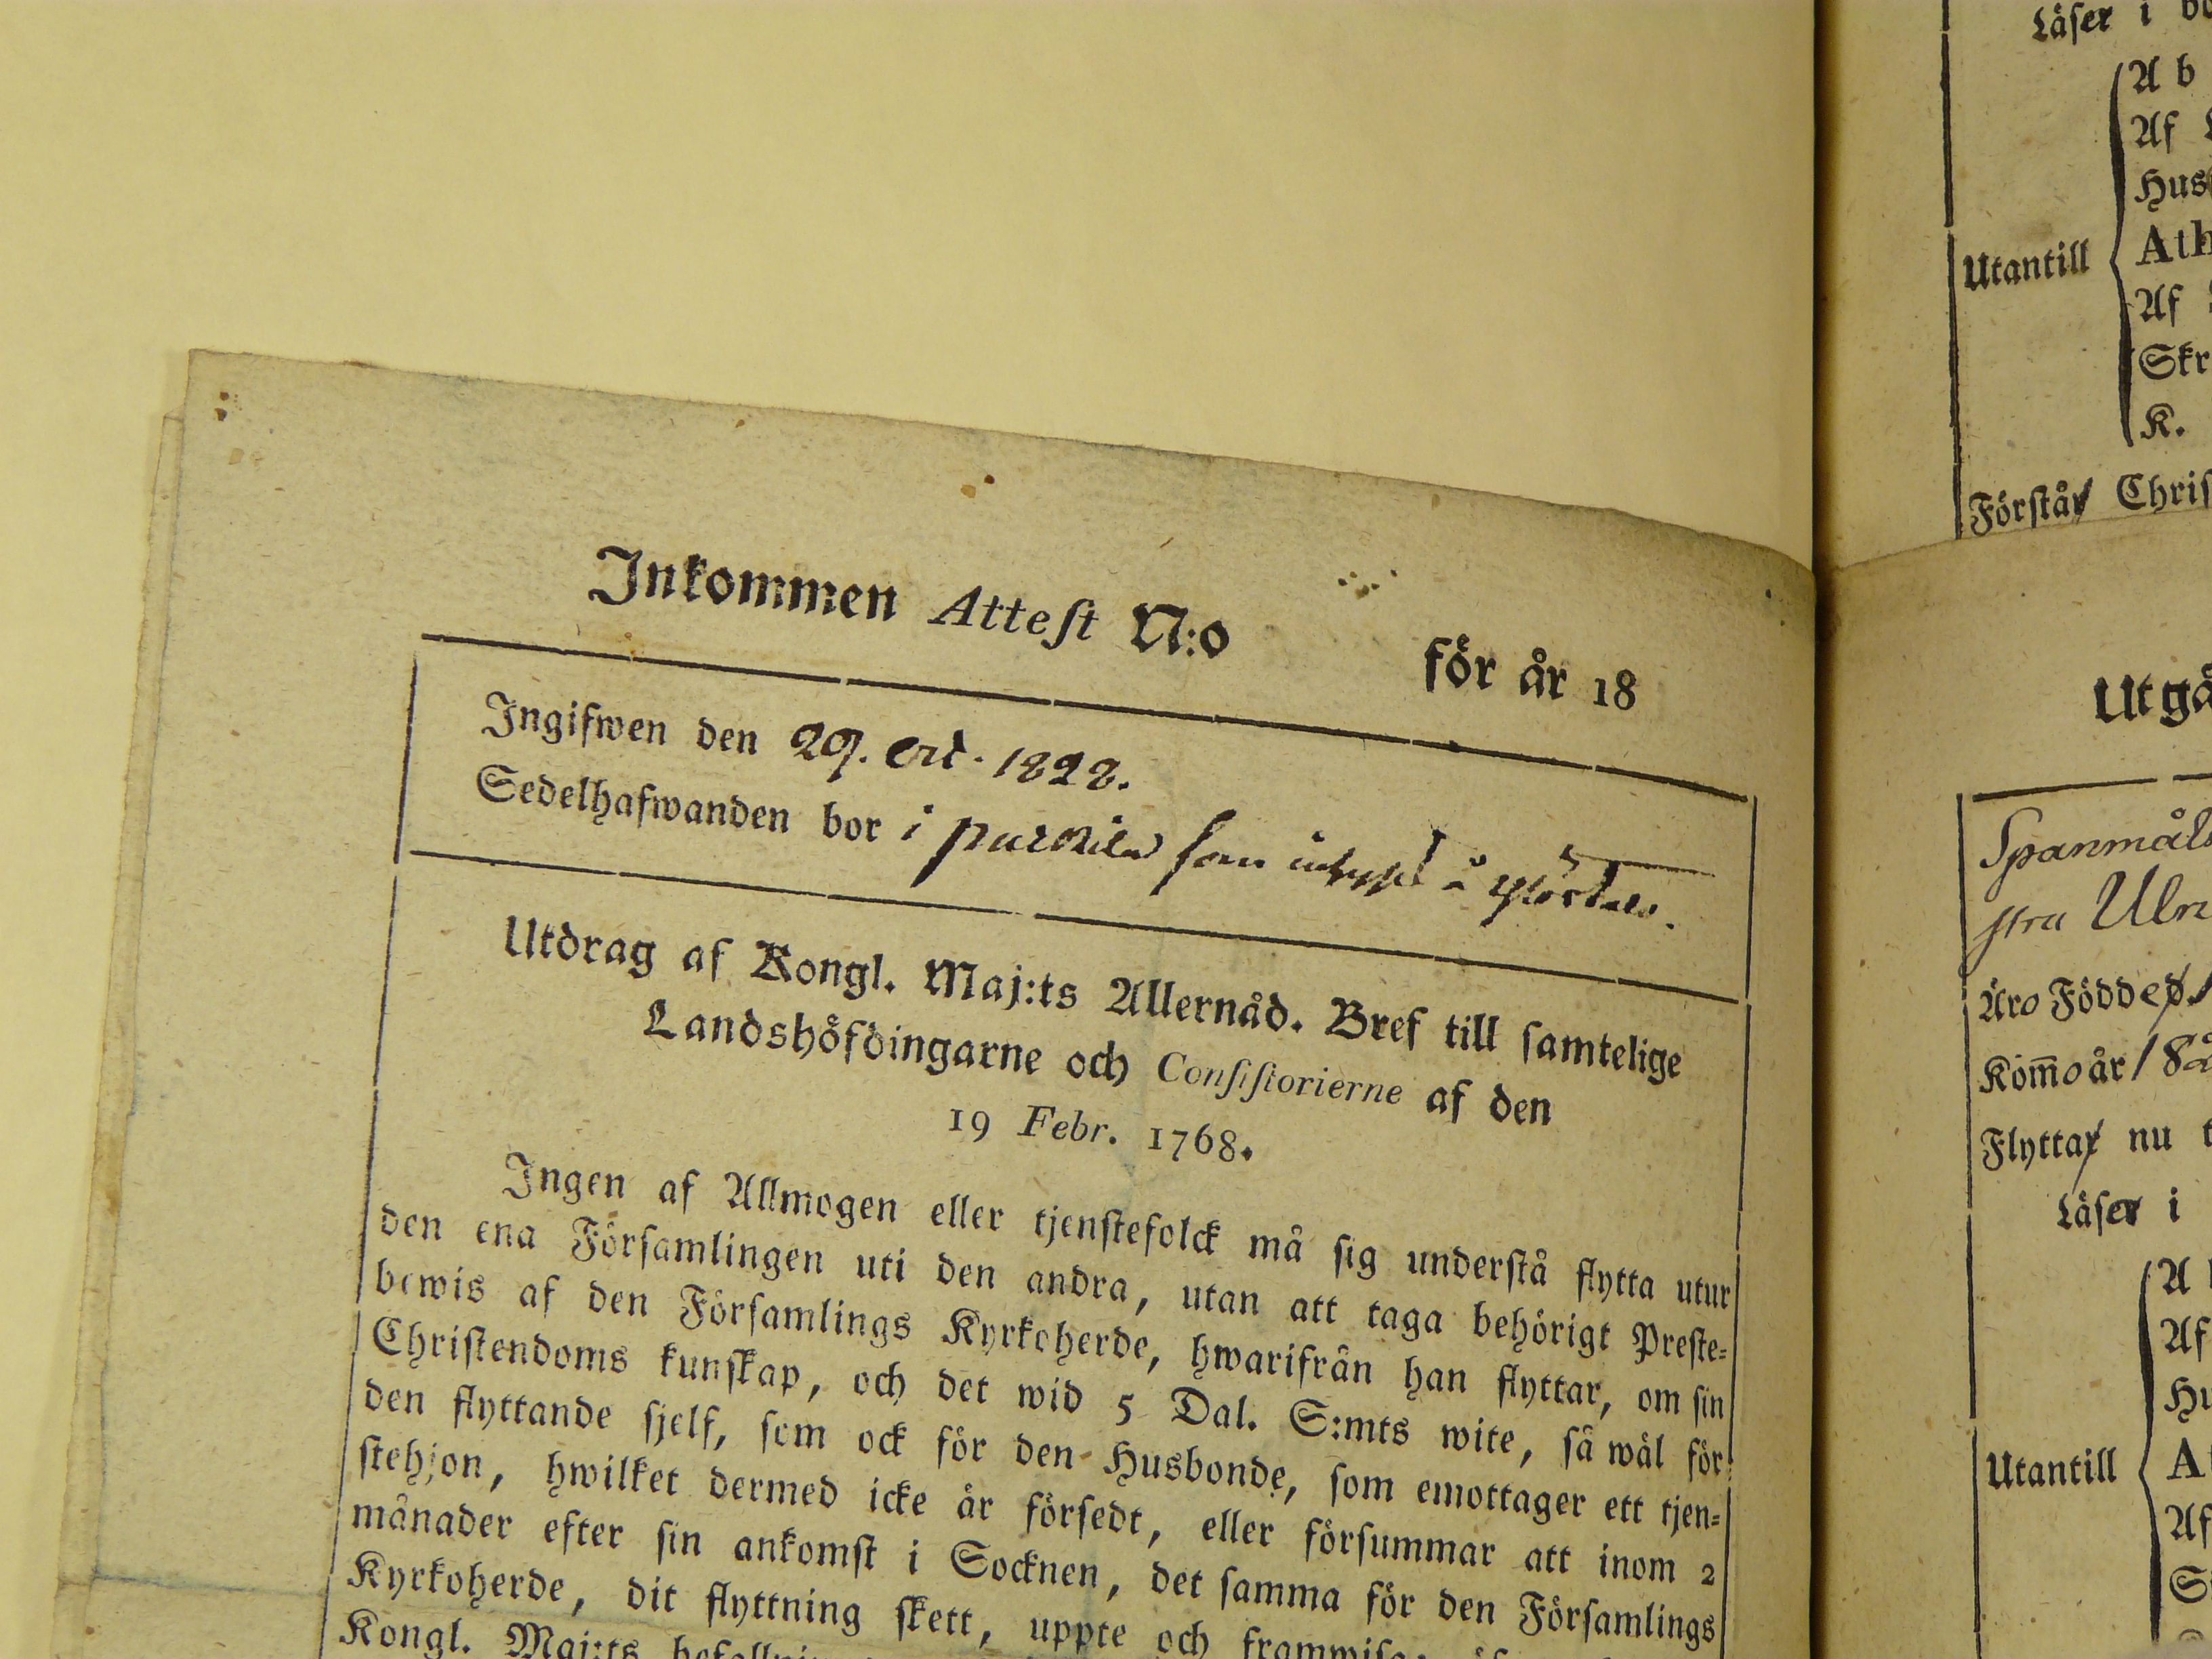 Inkommen Attest N:o för år 18
Ingifwen den 29. 1828.
Sedelhafwanden bor i som
Utdrag af Kongl. Maj:ts Allernåd. Bref till samtelige
Landshöfdingarne och Consistorierne af den
19 Febr. 1768.
Ingen af Allmogen eller tjenstefolck må sig understå flytta utur
den ena Församlingen uti den andra, utan att taga behörigt Preste-
bewis af den Församlings Kyrkoherde, hwarifrån han flyttar, om sin
Christendoms kunskap, och det wid 5 Dal. S:mts wite, så wäl för
den flyttande sjelf, som ock för den Husbonde, som emottager ett tjen-
stehjon, hwilket dermed icke är försedt, eller försummar att inom 2
månader efter sin ankomst i Socknen, det samma för den Församlings
Kyrkoherde, dit flyttning skett, uppte och
Kongl. Maj:ts
Läser i
A b
Af
Hus
Utantill
Ath
Af
Skr
K.
Förstår Chris
Utgå
Spanmåls
stru Ulri
Äro Födde
Kom̅o år 18
Flytta nu t
Läser i
A
Af
Hu
Utantill
At
Af
S